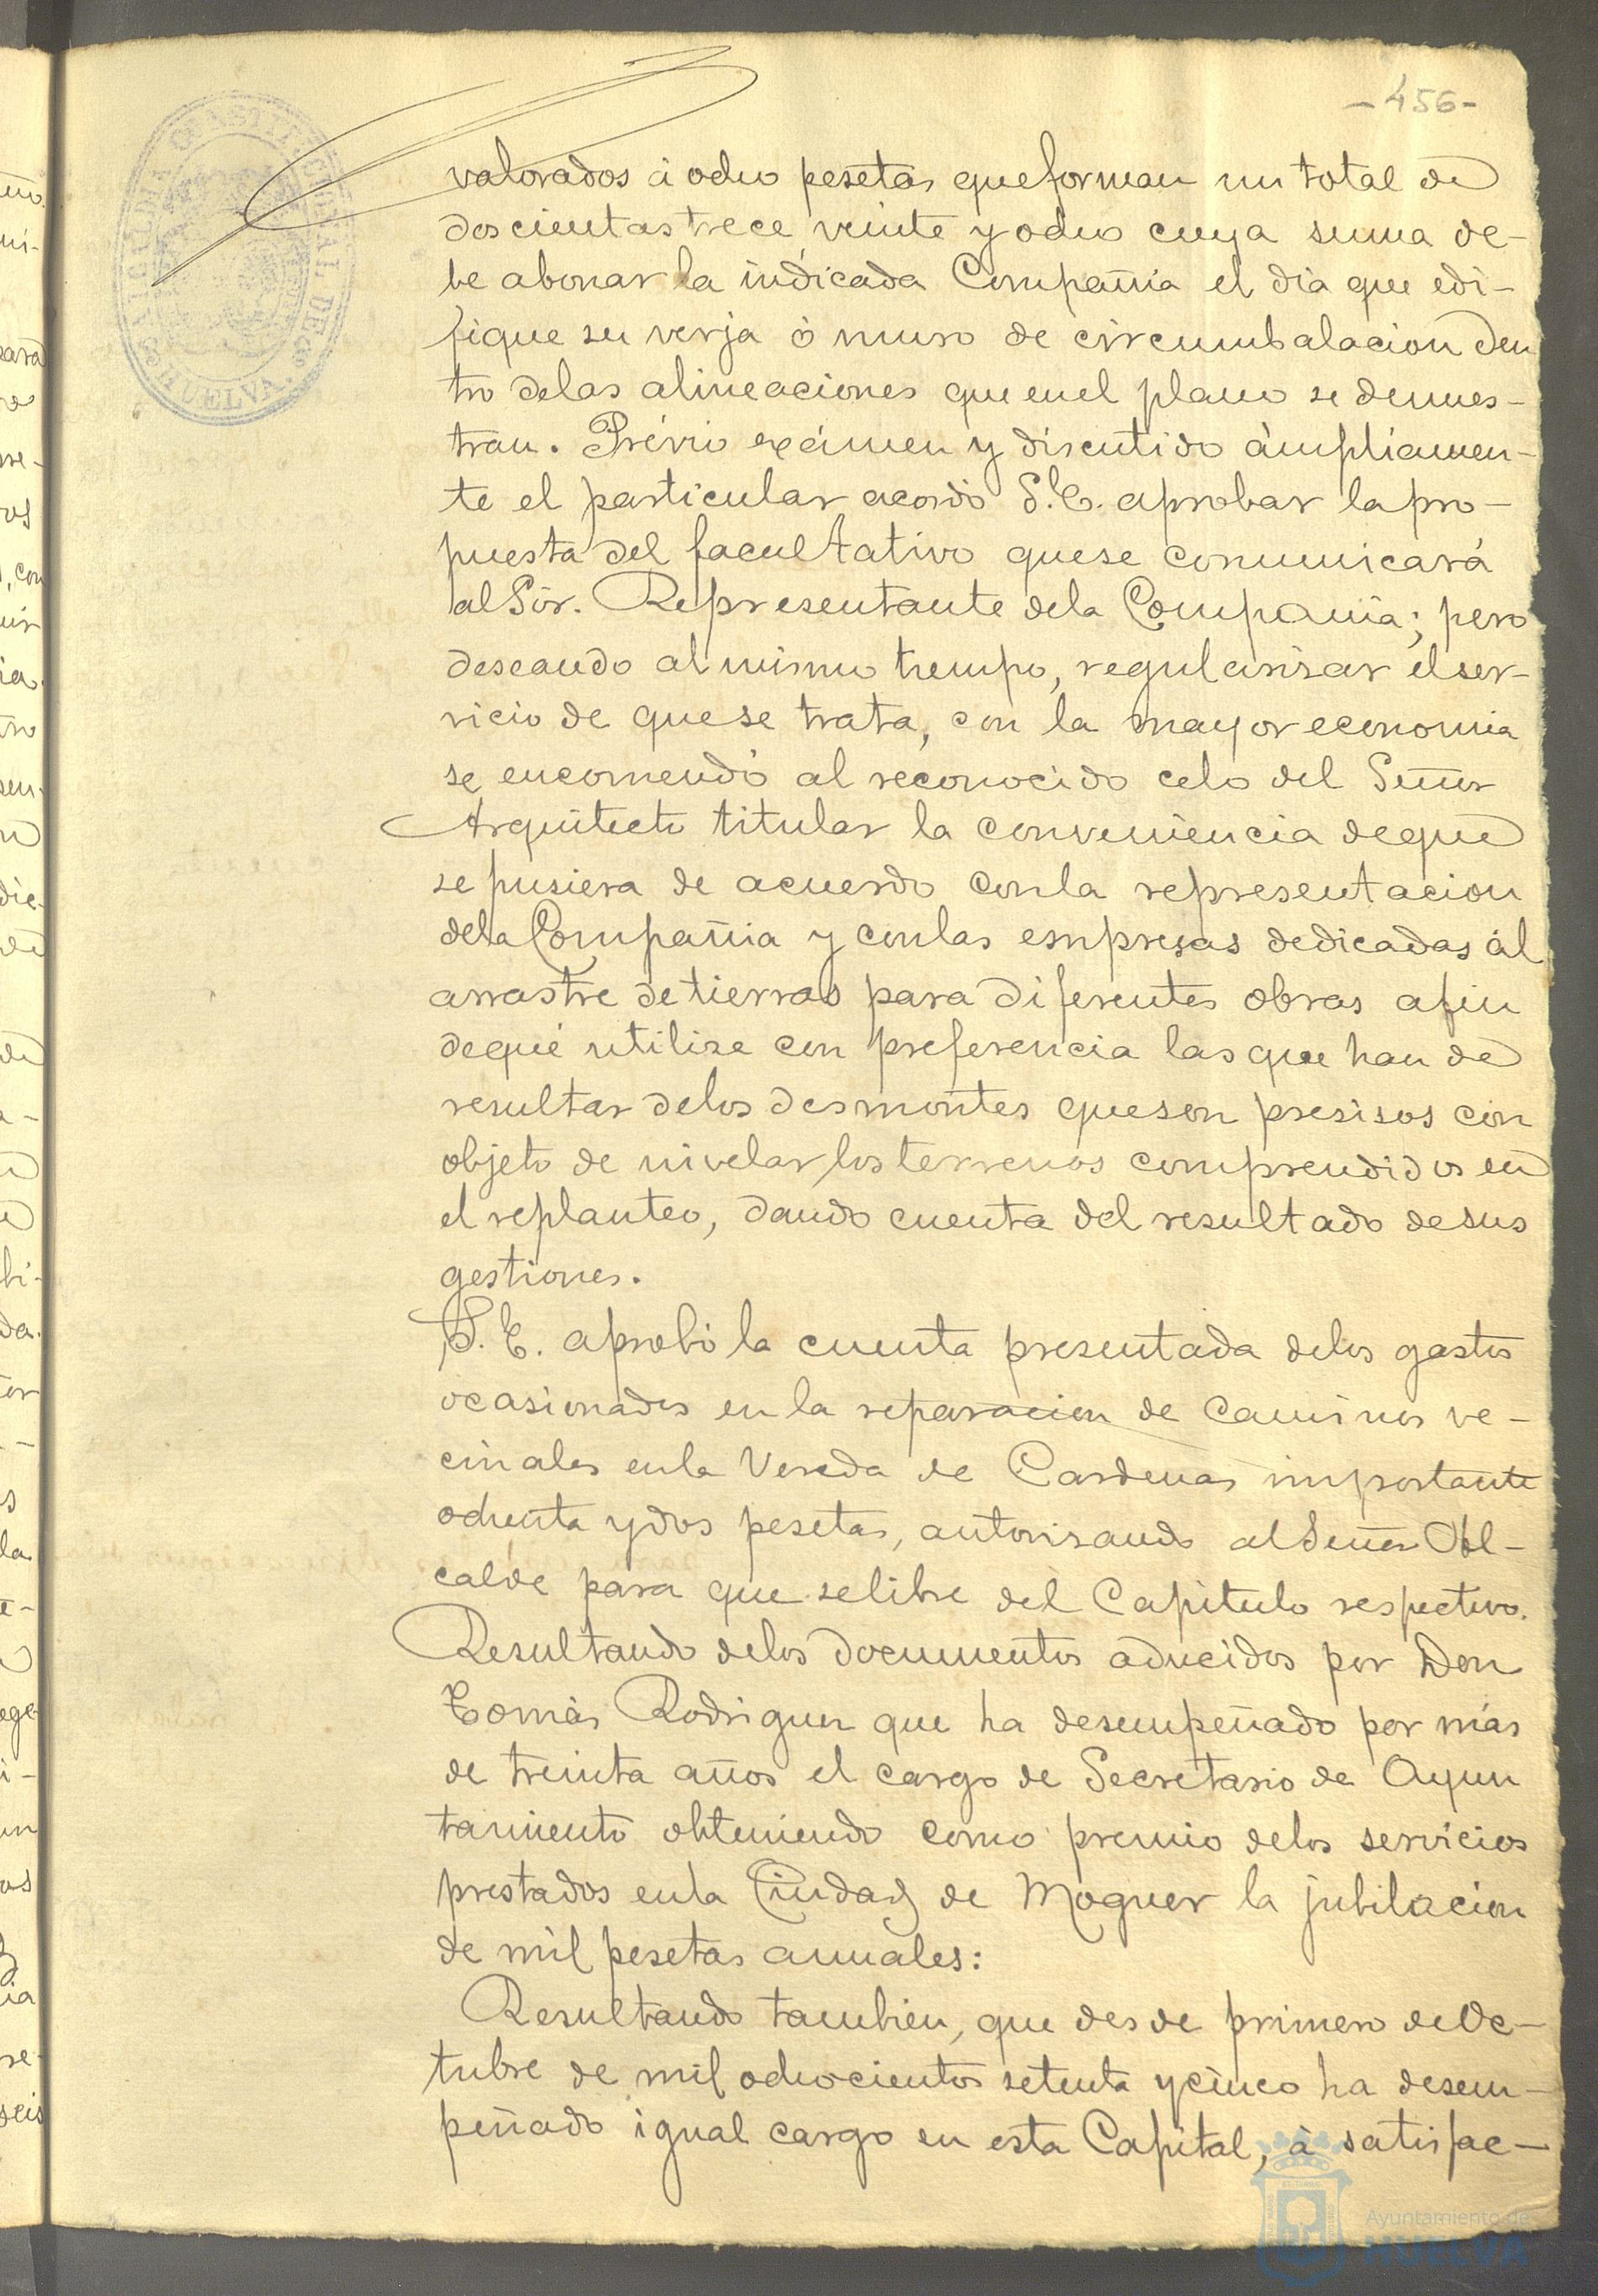 -456-
ALCALDIA CONSTITUCIONAL DE HUELVA.
valorados á ocho pesetas que forman un total de
doscientas trece veinte y ocho cuya suma de-
be abonar la indicada Compañia el dia que edi-
fique su verja ó muro de circumbalacion den
tro delas alineaciones que enel plano se demues-
tran. Prévio exámen y discutido ámpliamen-
te el particular acordó S.E. aprobar la pro-
puesta del facultativo quese comunicará
al Sór. Representante dela Compañia; pero
deseando al mismo tiempo, regularisar el ser-
vicio de quese trata, con la mayor economia
se encomendó al reconocido celo del Señor
Arquitecto titular la conveniencia deque
se pusiera de acuerdo conla representacion
dela Compañia y conlas empresas dedicadas ál
arrastre de tierras para diferentes obras afin
dequé utilise con preferencia las que han de
resultar delos desmontes queson presisos con
objeto de nivelar los terrenos comprendidos en
el replanteo, dando cuenta del resultado desus
gestiones.
S.E. aprobó la cuenta presentada delos gastos
ocasionados en la reparacion de caminos ve-
cinales enla Vereda de Cardenas importante
ochenta ydos pesetas, autorisando al Señor Al-
calde para que selibre del Capítulo respectivo.
Resultando delos documentos aducidos por Don
Tomás Rodriguez que ha desempeñado por más
de treinta años el cargo de Secretario de Ayun
tamiento obteniendo como premio delos servicios
prestados enla Ciudad de Moguer la jubilacion
de mil pesetas anuales:
Resultando tambien, que desde primero de Oc-
tubre de mil ochocientos setenta ycinco ha desem-
peñado igual cargo en esta Capital, á satisfac-
Ayuntamiento de
HUELVA